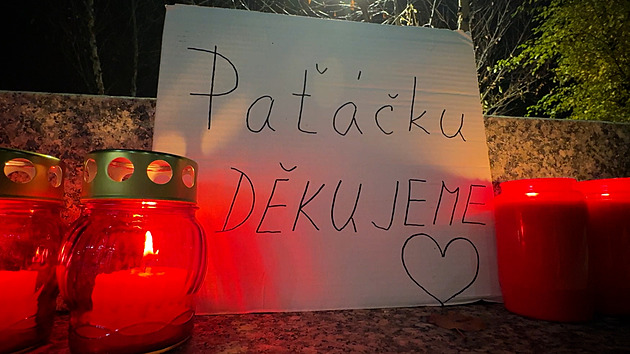 Paťáčku
DĚKUJEME